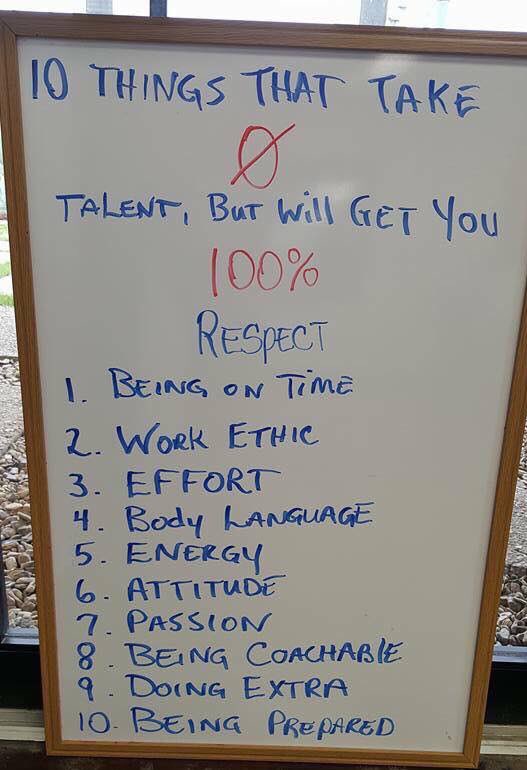 10 THINGS THAT TAKE
0
TALENT, BUT Will GET YOU
100%
RESPECT
1. BEING ON TiME
2. WORK ETHIC
3. EFFORT
4. Body LANGUAGE
5. ENERGY
6. ATTITUDE
7. PASSION
8. BEING COACHABlE
9. DOING EXTRA
10. BEING PREPARED